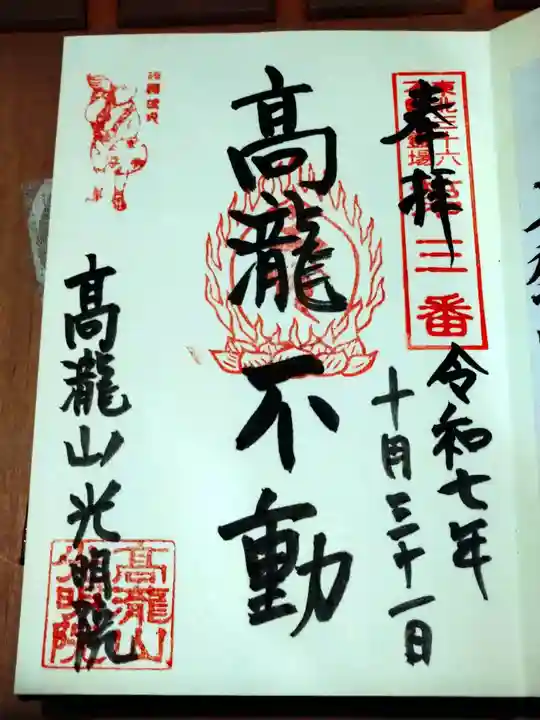 奉拝
東北三十六
不動尊霊場
第三番
令和七年
十月三十一日
高瀧不動
高瀧山光明院
高瀧山
光明院